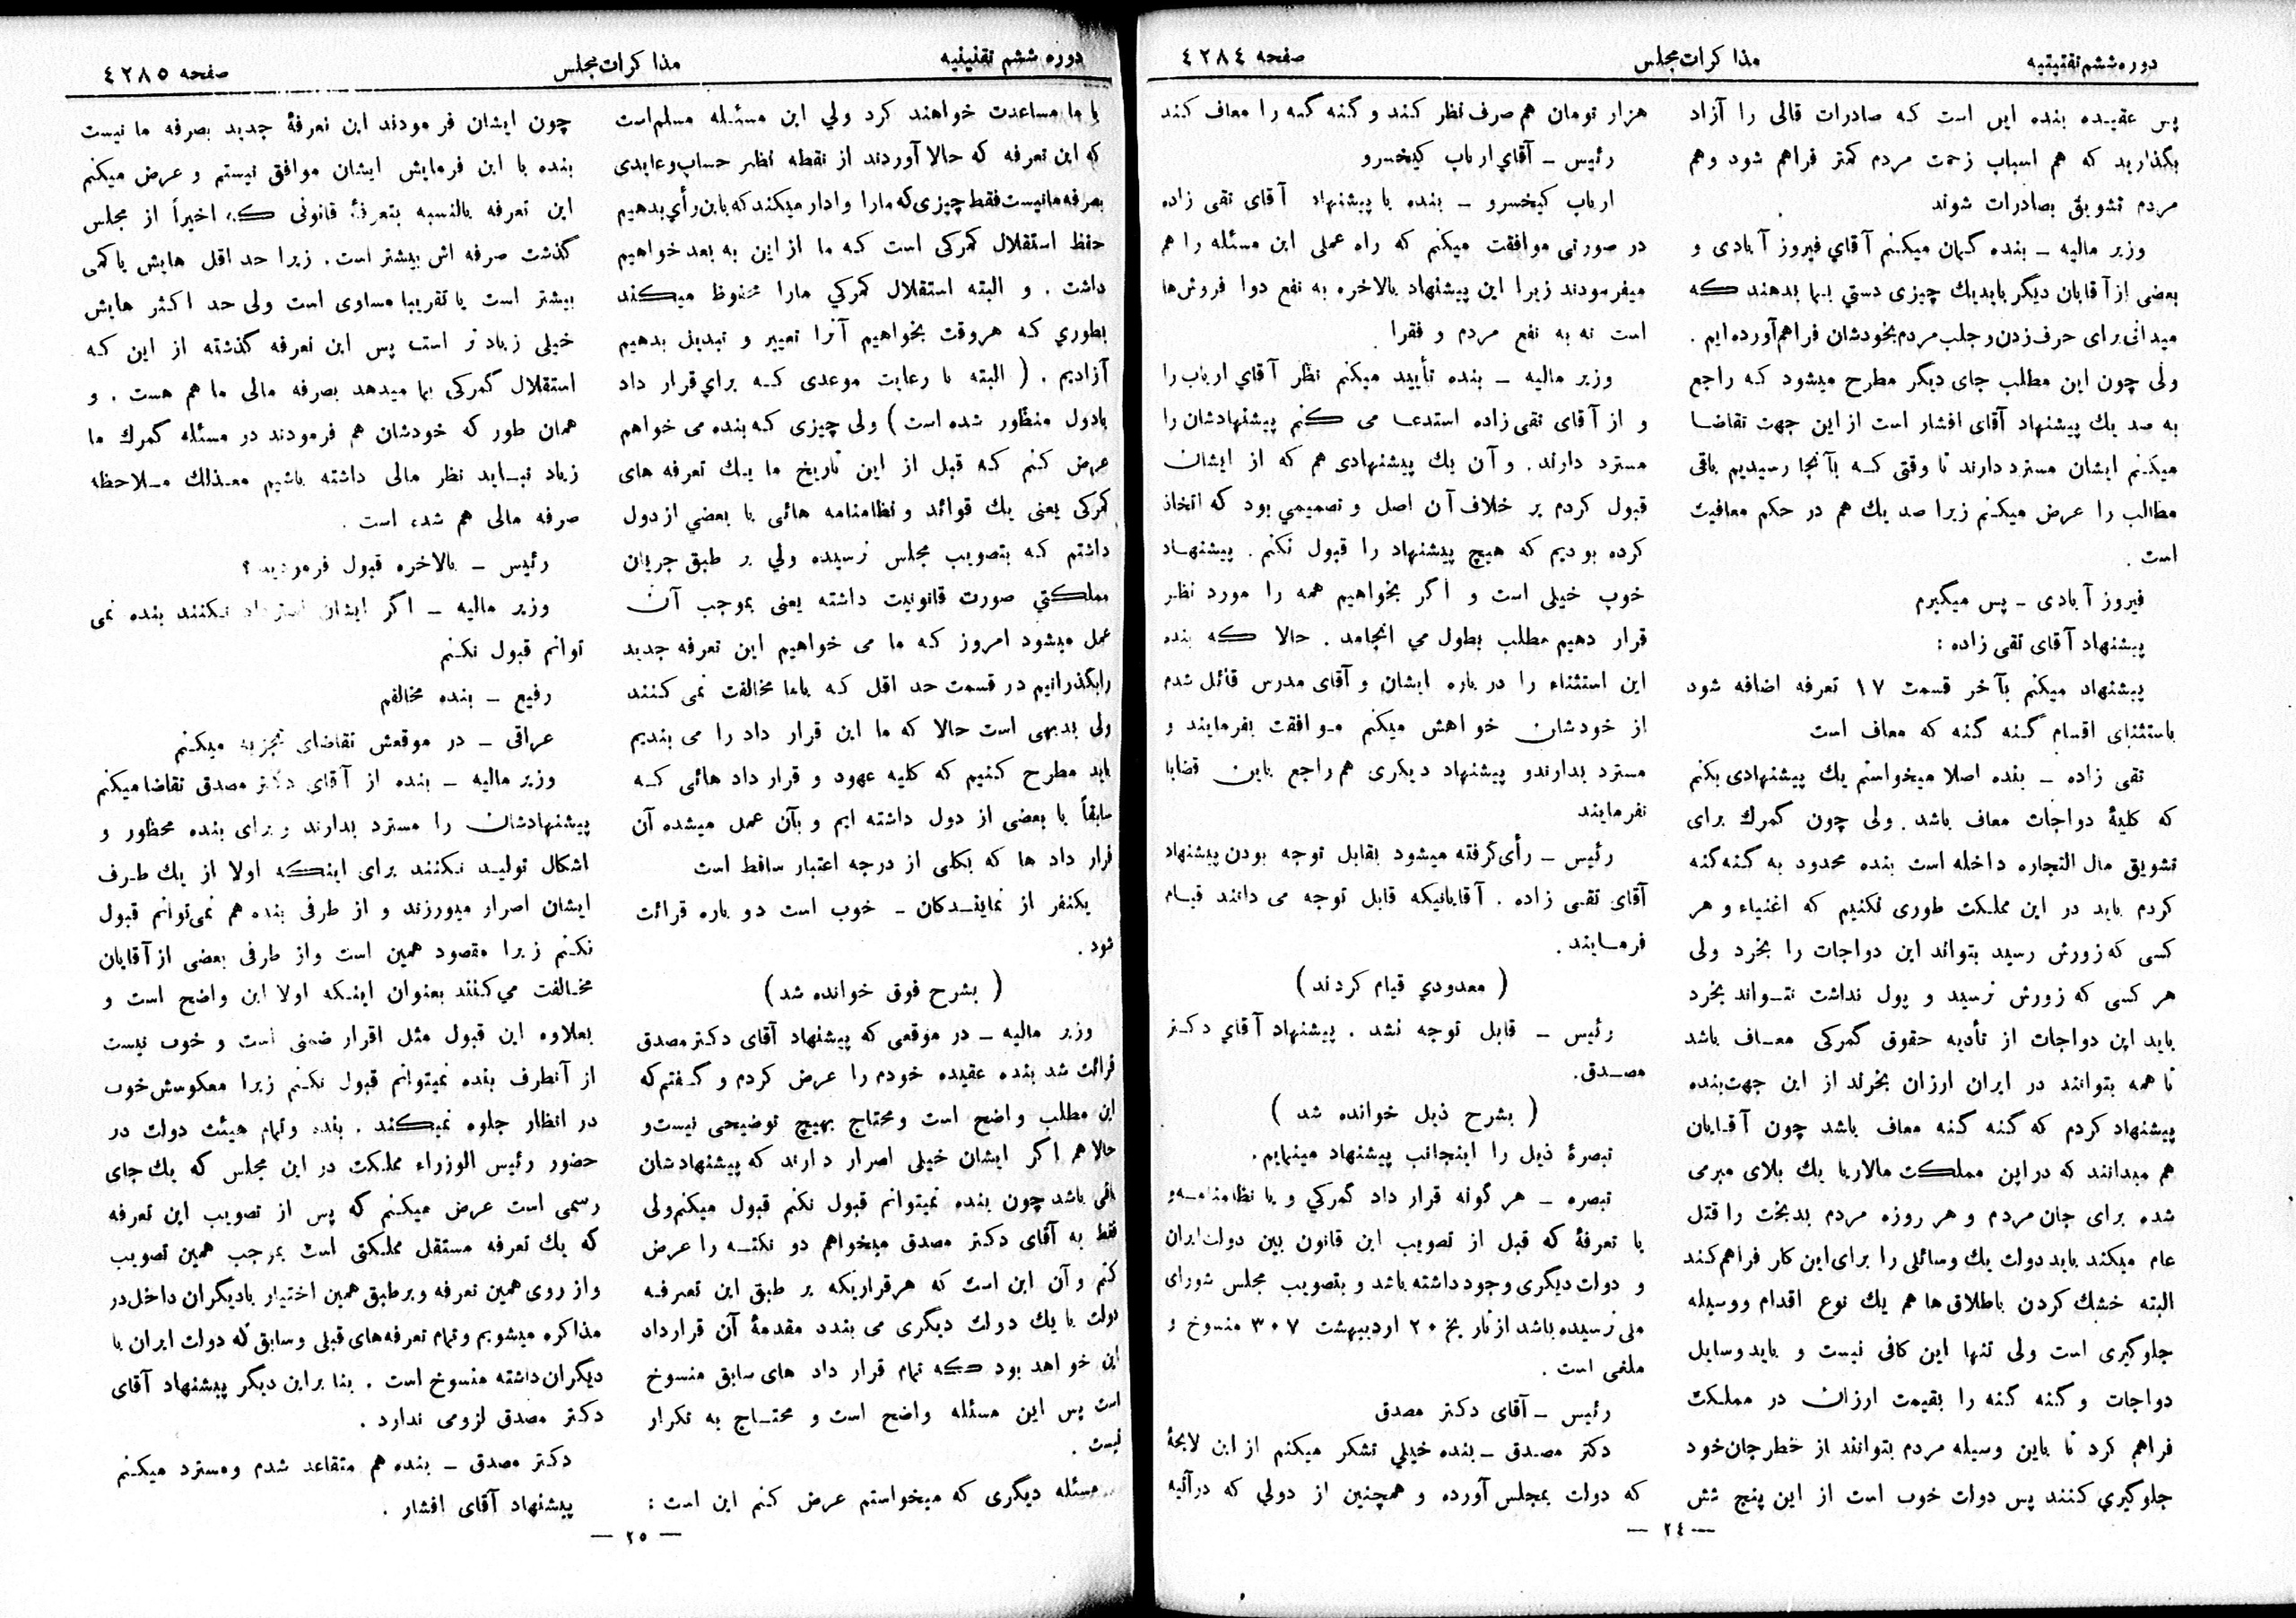 دوره ششم تقنینیه
مذا کرات مجلس
صفحه ٤٢٨٤
پس عقیده بنده این است که صادرات قالی را آزاد
بگذارید که هم اسباب زحمت مردم کمتر فراهم شود وهم
مردم تشویق بصادرات شوند
وزیر مالیه ــ بنده گمان میکنم آقاي فیروز آبادی و
بعضی از آقایان دیگر باید یك چیزی دستي بما بدهند که
میدانی برای حرف زدن و جلب مردم بخودشان فراهم آورده ایم .
ولی چون این مطلب جای دیگر مطرح میشود که راجع
به صد یك پیشنهاد آقای افشار است از این جهت تقاضا
میکنم ایشان مسترد دارند تا وقتی که بآنجا رسیدیم باقی
مطالب را عرض میکنم زیرا صد یك هم در حکم معافیت
است .
فیروز آبادی ــ پس میگیرم
پیشنهاد آقای تقی زاده :
پیشنهاد میکنم بآخر قسمت ١٧ تعرفه اضافه شود
باستثنای اقسام گنه گنه که معاف است
تقی زاده ــ بنده اصلا میخواستم یك پیشنهادی بکنم
که کلیهٔ دواجات معاف باشد . ولی چون گمرك برای
تشویق مال التجاره داخله است بنده محدود به گنه گنه
کردم باید در این مملکت طوری نکنیم که اغنیاء و هر
کسی که زورش رسید بتواند این دواجات را بخرد ولی
هر کسی که زورش نرسید و پول نداشت نتــواند بخرد
باید این دواجات از تأدیه حقوق گمرکی معــاف باشد
تا همه بتوانند در ایران ارزان بخرند از این جهت بنده
پیشنهاد کردم که گنه گنه معاف باشد چون آقایان
هم میدانند که در این مملکت مالاریا یك بلای مبرمی
شده برای جان مردم و هر روزه مردم بدبخت را قتل
عام میکند باید دولت یك وسائلی را برای این کار فراهم کند
البته خشك کردن باطلاق ها هم یك نوع اقدام ووسیله
جلوگیری است ولی تنها این کافی نیست و باید وسایل
دواجات و گنه گنه را بقیمت ارزان در مملکت
فراهم کرد تا باین وسیله مردم بتوانند از خطر جان خود
جلوگیري کنند پس دولت خوب است از این پنج شش
هزار تومان هم صرف نظر کند و گنه گنه را معاف کند
رئیس ــ آقاي ارباب کیخسرو
ارباب کیخسرو ــ بنده با پیشنهاد آقای تقی زاده
در صورتی موافقت میکنم که راه عملی این مسئله را هم
میفرمودند زیرا این پیشنهاد بالاخره به نفع دوا فروش ها
است نه به نفع مردم و فقرا
وزیر مالیه ــ بنده تأیید میکنم نظر آقاي ارباب را
و از آقای تقی زاده استدعا می کنم پیشنهادشان را
مسترد دارند . و آن یك پیشنهادی هم که از ایشان
قبول کردم بر خلاف آن اصل و تصمیمي بود که اتخاذ
کرده بودیم که هیچ پیشنهاد را قبول نکنم . پیشنهـاد
خوب خیلی است و اگر بخواهیم همه را مورد نظر
قرار دهیم مطلب بطول مي انجامد . حالا که بنده
این استثناء را در باره ایشان و آقای مدرس قائل شدم
از خودشان خواهش میکنم مـوافقت بفرمایند و
مسترد بدارندو پیشنهاد دیگری هم راجع باین قضایا
نفرمایند
رئیس ــ رأی گرفته میشود بقابل توجه بودن پیشنهاد
آقای تقی زاده . آقایانیکه قابل توجه می دانند قیـام
فرمــایند .
( معدودي قیام کردند )
رئیس ــ قابل توجه نشد . پیشنهاد آقاي دکتر
مصــدق.
( بشرح ذیل خوانده شد )
تبصرهٔ ذیل را اینجانب پیشنهاد مینمایم .
تبصره ــ هر گونه قرار داد گمرکي و یا نظامنامــه و
یا تعرفهٔ که قبل از تصویب این قانون بین دولت ایران
و دولت دیگری وجود داشته باشد و بتصویب مجلس شورای
ملی نرسیده باشد از تاریخ ٢٠ اردیبهشت ٣٠٧ منسوخ و
ملغی است .
رئیس ــ آقای دکتر مصدق
دکتر مصدق ــ بنده خیلي تشکر میکنم از این لایحهٔ
که دولت بمجلس آورده و همچنین از دولي که در آتیه
— ٢٤ —
دوره ششم تقنینیه
مذا کرات مجلس
صفحه ٤٢٨٥
با ما مساعدت خواهند کرد ولي این مسئـله مسلم است
که این تعرفه که حالا آوردند از نقطه نظر حساب و عایدی
بصرفه ما نیست فقط چیزی که ما را وادار میکند که باین رأي بدهیم
حفظ استقلال گمرکی است که ما از این به بعد خواهیم
داشت . و البته استقلال گمرکي مارا محفوظ میکند
بطوري که هروقت بخواهیم آنرا تغییر و تبدیل بدهیم
آزادیم . ( البته با رعایت موعدی که براي قرار داد
بادول منظور شده است ) ولی چیزی که بنده می خواهم
عرض کنم که قبل از این تاریخ ما یـك تعرفه های
گمرکی یعنی یك قوائد و نظامنامه هائی با بعضي از دول
داشتم که بتصویب مجلس نرسیده ولي بر طبق جریان
مملکتي صورت قانونیت داشته یعنی بموجب آن
عمل میشود امروز که ما می خواهیم این تعرفه جدید
رابگذرانیم در قسمت حد اقل که باما مخالفت نمی کنند
ولی بدیهی است حالا که ما این قرار داد را می بندیم
باید مطرح کنیم که کلیه عهود و قرار داد هائی کـه
سابقاً با بعضی از دول داشته ایم و بآن عمل میشده آن
قرار داد ها که بکلی از درجه اعتبار ساقط است
یکنفر از نماینــدکان ــ خوب است دو باره قرائت
شود .
( بشرح فوق خوانده شد )
وزیر مالیه ــ در موقعی که پیشنهاد آقای دکتر مصدق
قرائت شد بنده عقیده خودم را عرض کردم و گـفتم که
این مطلب واضح است ومحتاج بهیچ توضیحی نیست و
حالا هم اگر ایشان خیلی اصرار دارند که پیشنهادشان
باقی باشد چون بنده نمیتوانم قبول نکنم قبول میکنم ولی
فقط به آقای دکتر مصدق میخواهم دو نکتـه را عرض
کنم و آن این است که هر قراریکه بر طبق این تعرفـه
دولت با یك دولت دیگری می بندد مقدمهٔ آن قرارداد
این خواهد بود که تمام قرار داد های سابق منسوخ
است پس این مسئله واضح است و محتــاج به تکرار
نیست .
مسئله دیگری که میخواستم عرض کنم این است :
چون ایشان فرمودند این تعرفهٔ جدید بصرفه ما نیست
بنده با این فرمایش ایشان موافق نیستم و عرض میکنم
این تعرفه بالنسبه بتعرفهٔ قانونی که اخیراً از مجلس
گذشت صرفه اش بیشتر است . زیرا حد اقل هایش یا کمی
بیشتر است یا تقریبا مساوی است ولی حد اکثر هایش
خیلی زیادتر است پس این تعرفه گذشته از این که
استقلال گمرکی بما میدهد بصرفه مالی ما هم هست . و
همان طور که خودشان هم فرمودند در مسئله گمرك ما
زیاد نبـاید نظر مالی داشته باشیم معـذلك مــلاحظه
صرفه مالی هم شده است .
رئیس ــ بالاخره قبول فرمودید ؟
وزیر مالیه ــ اگر ایشان استرداد نکنند بنده نمی
توانم قبول نکنم
رفیع ــ بنده مخالفم
عراقی ــ در موقعش تقاضای تجزیه میکنم
وزیر مالیه ــ بنده از آقای دکتر مصدق تقاضا میکنم
پیشنهادشان را مسترد بدارند و برای بنده محظور و
اشکال تولیـد نکنند برای اینکه اولا از یك طرف
ایشان اصرار میورزند و از طرفی بنده هم نمی توانم قبول
نکنم زیرا مقصود همین است واز طرفی بعضی از آقایان
مخـالفت می کنند بعنوان اینکه اولا این واضح است و
بعلاوه این قبول مثل اقرار ضمنی است و خوب نیست
از آنطرف بنده نمیتوانم قبول نکنم زیرا معکوسش خوب
در انظار جلوه نمیکند . بنده وتمام هیئت دولت در
حضور رئیس الوزراء مملکت در این مجلس که یك جای
رسمی است عرض میکنم که پس از تصویب این تعرفه
که یك تعرفه مستقل مملکتی است بموجب همین تصویب
واز روی همین تعرفه وبرطبق همین اختیار بادیگران داخل در
مذاکره میشویم وتمام تعرفه های قبلی وسابق که دولت ایران با
دیگران داشته منسوخ است . بنا براین دیگر پیشنهاد آقای
دکتر مصدق لزومی ندارد .
دکتر مصدق ــ بنده هم متقاعد شدم ومسترد میکنم
پیشنهاد آقای افشار .
— ٢٥ —